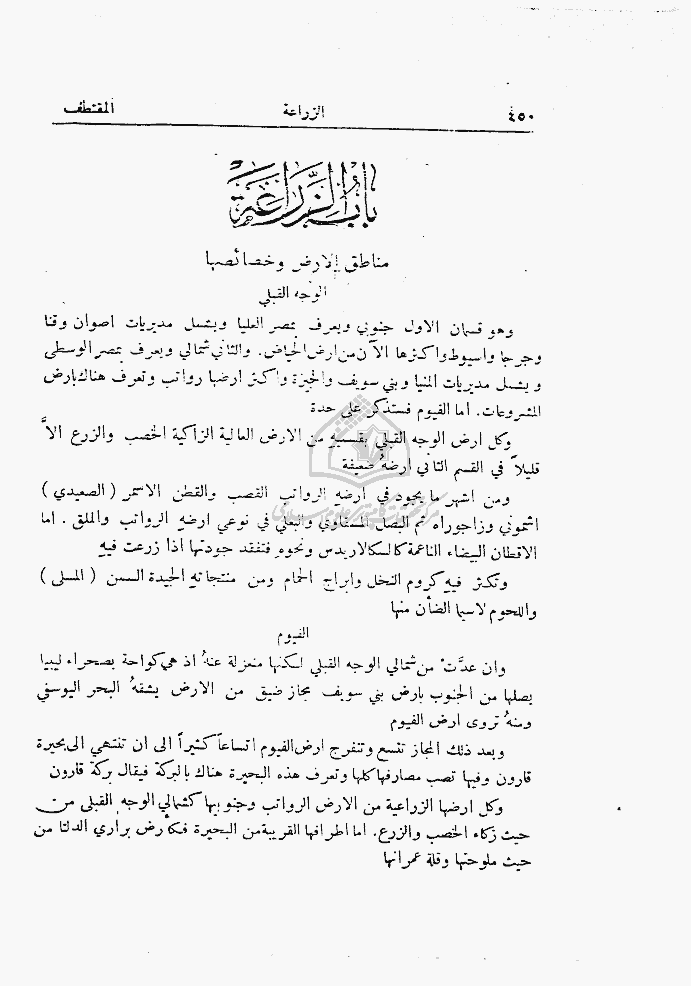 ٤٥٠ الزراعة المقتطف
باب الزراعة
مناطق الارض وخصائصها
الوجه القبلي
وهو قسمان الاول جنوبي ويعرف بمصر العليا ويشمل مديريات اصوان وقنا
وجرجا واسيوط واكثرها الآن من ارض الحياض. والثاني شمالي ويعرف بمصر الوسطى
ويشمل مديريات المنيا وبني سويف والجيزة واكثر ارضها رواتب وتعرف هناك بارض
المشروعات. اما الفيوم فستذكر على حدة
وكل ارض الوجه القبلي بقسميه من الارض العالية الزاكية الخصب والزرع الاَّ
قليلاً في القسم الثاني ارضهُ ضعيفة
ومن اشهر ما يجود في ارضه الرواتب القصب والقطن الاسمر (الصعيدي)
اشموني وزاجوراه ثم البصل المسقاوي والبعلي في نوعي ارضه الرواتب والملق. اما
الاقطان البيضاء الناعمة كالسكالاريدس ونحوه فتفقد جودتها اذا زرعت فيه
وتكثر فيه كروم النخل وابراج الحمام ومن منتجاته الجيدة السمن (المسلى)
واللحوم لاسيما الضأن منها
الفيوم
وان عدَّت من شمالي الوجه القبلي لكنها منعزلة عنهُ اذ هي كواحة بصحراء ليبيا
يصلها من الجنوب بارض بني سويف مجاز ضيق من الارض يشقهُ البحر اليوسفي
ومنهُ تروى ارض الفيوم
وبعد ذلك المجاز تتسع وتنفرج ارض الفيوم اتساعاً كثيراً الى ان تنتهي الى بحيرة
قارون وفيها تصب مصارفها كلها وتعرف هذه البحيرة هناك بالبركة فيقال بركة قارون
وكل ارضها الزراعية من الارض الرواتب وجنوبها كشمالي الوجه القبلي من
حيث زكاء الخصب والزرع. اما اطرافها القريبة من البحيرة فكأرض براري الدلتا من
حيث ملوحتها وقلة عمرانها